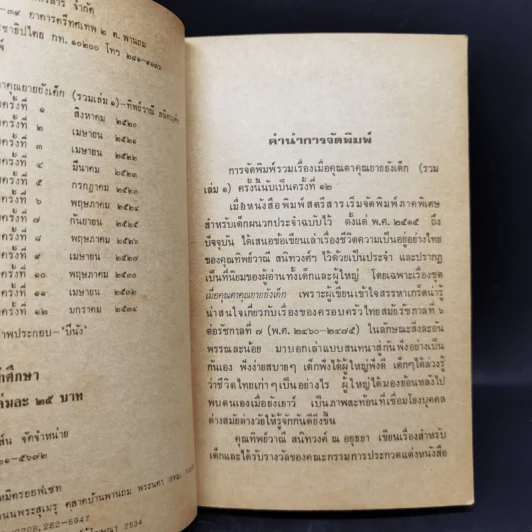 สตรีสาร จำกัด
-๓๙ อาคารตรีทศเทพ ๒ ถ.พานถม
ประชาธิปไตย กท. ๑๐๒๐๐ โทร
คุณยายยังเด็ก (รวมเล่ม ๑)-ทิพย์วาณี
ครั้งที่ ๑ สิงหาคม ๒๕๒๐
ครั้งที่ ๒ เมษายน ๒๕๒๑
ครั้งที่ ๓ เมษายน ๒๕๒๒
ครั้งที่ ๔ มีนาคม ๒๕๒๓
ครั้งที่ ๕ กรกฎาคม ๒๕๒๓
ครั้งที่ ๖ พฤษภาคม ๒๕๒๔
ครั้งที่ ๗ กันยายน ๒๕๒๕
ครั้งที่ ๘ พฤษภาคม ๒๕๒๖
ครั้งที่ ๙ เมษายน
ครั้งที่ ๑๐ พฤษภาคม ๒๕๓๑
ครั้งที่ ๑๑ เมษายน ๒๕๓๒
ครั้งที่ ๑๒ มกราคม ๒๕๓๔
ภาพประกอบ-"ปีนัง"
ศึกษา
เล่มละ ๒๕ บาท
จัดจำหน่าย
๑-๕๖๗๒
มิตรออฟเซท
ถนนพระสุเมรุ ตลาดบ้านพานถม พระนคร กทม.
282-5947
2534
คำนำการจัดพิมพ์
การจัดพิมพ์รวมเรื่องเมื่อคุณตาคุณยายยังเด็ก (รวม
เล่ม ๑) ครั้งนี้นับเป็นครั้งที่ ๑๒
เมื่อหนังสือพิมพ์สตรีสารเริ่มจัดพิมพ์ภาคพิเศษ
สำหรับเด็กผนวกประจำฉบับไว้ ตั้งแต่ พ.ศ.๒๕๑๕ ถึง
ปัจจุบัน ได้เสนอข้อเขียนเล่าเรื่องชีวิตความเป็นอยู่อย่างไทย
ของคุณทิพย์วาณี สนิทวงศ์ฯ ไว้ด้วยเป็นประจำ และปรากฏ
เป็นที่นิยมของผู้อ่านทั้งเด็กและผู้ใหญ่ โดยเฉพาะเรื่องชุด
เมื่อคุณตาคุณยายยังเด็ก เพราะผู้เขียนเข้าใจสรรหาเกร็ดน่ารู้
น่าสนใจเกี่ยวกับเรื่องของครอบครัวไทยสมัยรัชกาลที่ ๖
ต่อรัชกาลที่ ๗ (พ.ศ. ๒๔๖๐-๒๔๗๕) ในลักษณะสิ่งละอัน
พรรณละน้อย มาบอกเล่าแบบสนทนาสู่กันฟังอย่างเป็น
กันเอง ฟังง่ายสบายๆ เด็กฟังได้ผู้ใหญ่ฟังดี เด็กๆได้ล่วงรู้
ว่าชีวิตไทยเก่าๆเป็นอย่างไร ผู้ใหญ่ได้มองย้อนหลังไป
พบตนเองเมื่อยังเยาว์ เป็นภาพสะท้อนที่เชื่อมโยงบุคคล
ต่างสมัยต่างวัยให้รู้จักกันดียิ่งขึ้น
คุณทิพย์วาณี สนิทวงศ์ ณ อยุธยา เขียนเรื่องสำหรับ
เด็กและได้รับรางวัลของคณะกรรมการประกวดแต่งหนังสือ